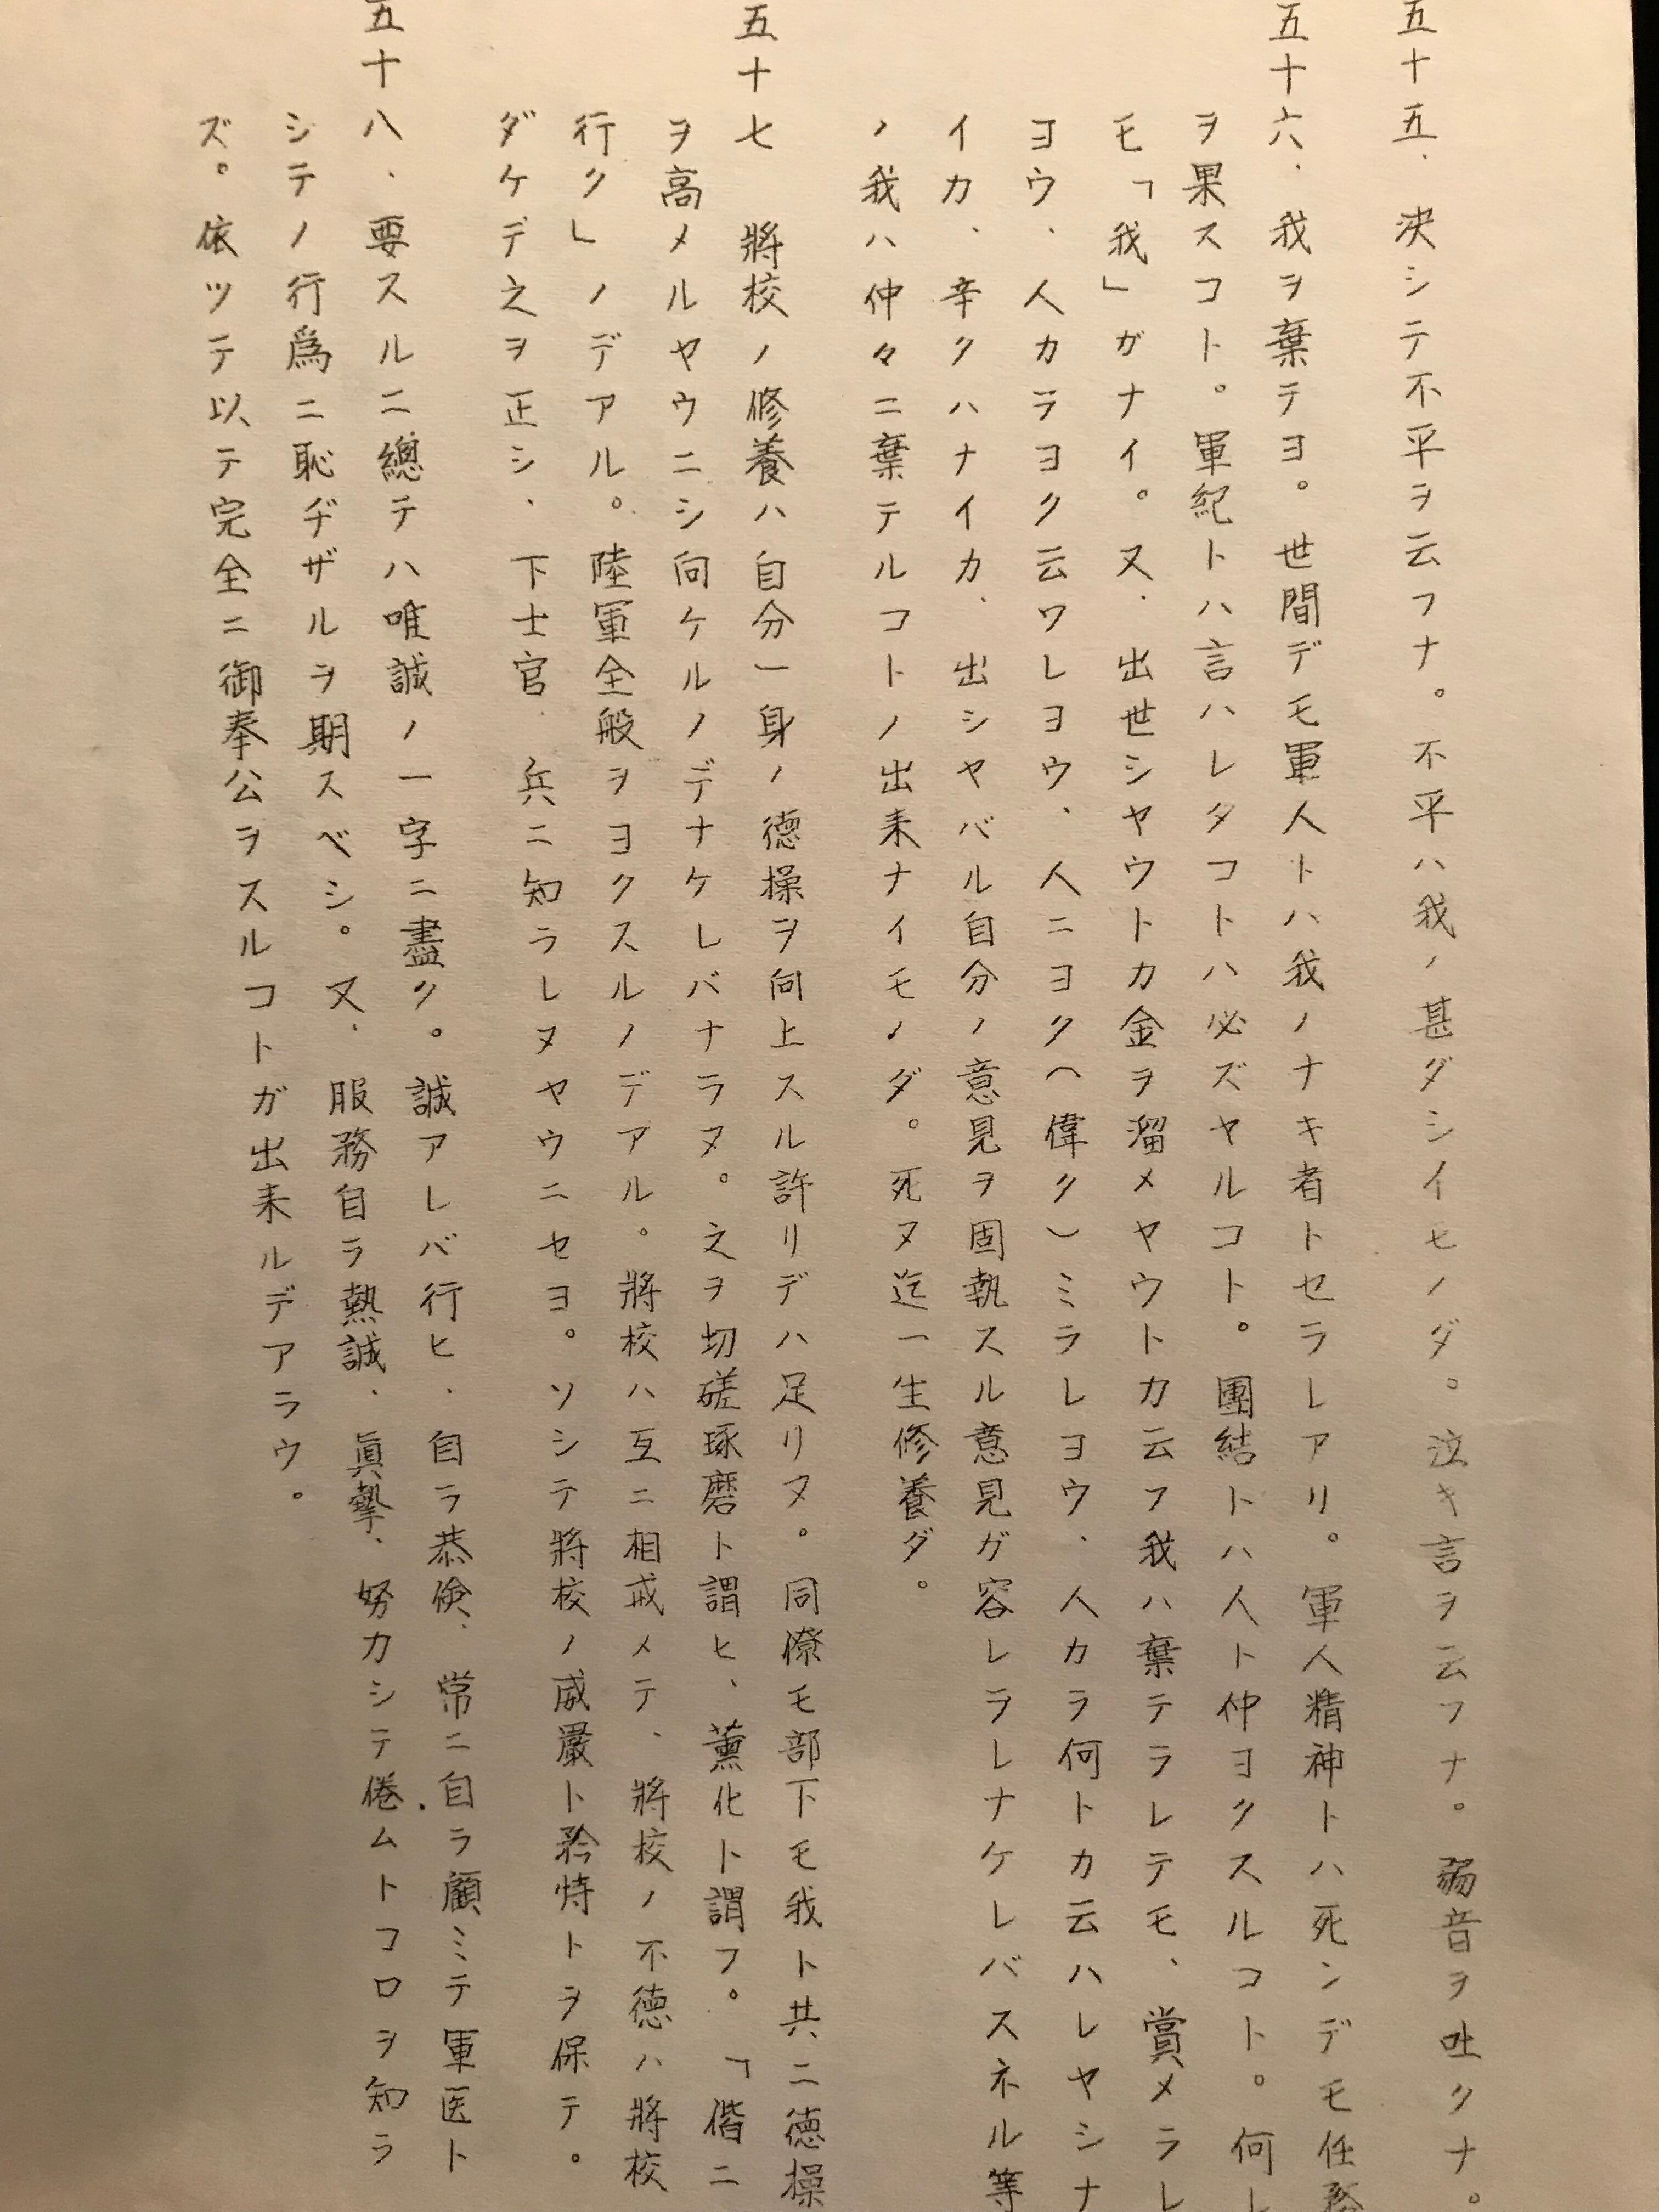 五十五、決シテ不平ヲ云フナ。不平ハ我ノ甚ダシイモノダ。泣キ言ヲ云フナ。弱音ヲ吐クナ。
五十六、我ヲ棄テヨ。世間デモ軍人トハ我ノナキ者トセラレアリ。軍人精神トハ死ンデモ任務
ヲ果スコト。軍紀トハ言ハレタコトハ必ズヤルコト。團結トハ人ト仲ヨクスルコト。何レ
モ「我」ガナイ。又、出世シヤウトカ金ヲ溜メヤウトカ云フ我ハ棄テラレテモ、賞メラレ
ヨウ、人カラヨク云ワレヨウ、人ニヨク(偉ク)ミラレヨウ、人カラ何トカ云ハレヤシナ
イカ、辛クハナイカ、出シヤバル自分ノ意見ヲ固執スル意見ガ容レラレナケレバスネル等
ノ我ハ仲々ニ棄テルコトノ出来ナイモノダ。死ヌ迄一生修養ダ。
五十七 將校ノ修養ハ自分一身ノ德操ヲ向上スル許リデハ足リヌ。同僚モ部下モ我ト共ニ德操
ヲ高メルヤウニシ向ケルノデナケレバナラヌ。之ヲ切磋琢磨ト謂ヒ、薫化ト謂フ。「偕ニ
行ク」ノデアル。陸軍全般ヲヨクスルノデアル。將校ハ互ニ相戒メテ、將校ノ不德ハ將校
ダケデ之ヲ正シ、下士官、兵ニ知ラレヌヤウニセヨ。ソシテ將校ノ威嚴ト矜恃トヲ保テ。
五十八、要スルニ總テハ唯誠ノ一字ニ盡ク。誠アレバ行ヒ、自ラ恭倹、常ニ自ラ顧ミテ軍医ト
シテノ行爲ニ恥ヂザルヲ期スベシ。又、服務自ラ熱誠、眞摯、努力シテ倦ムトコロヲ知ラ
ズ。依ツテ以テ完全ニ御奉公ヲスルコトガ出来ルデアラウ。